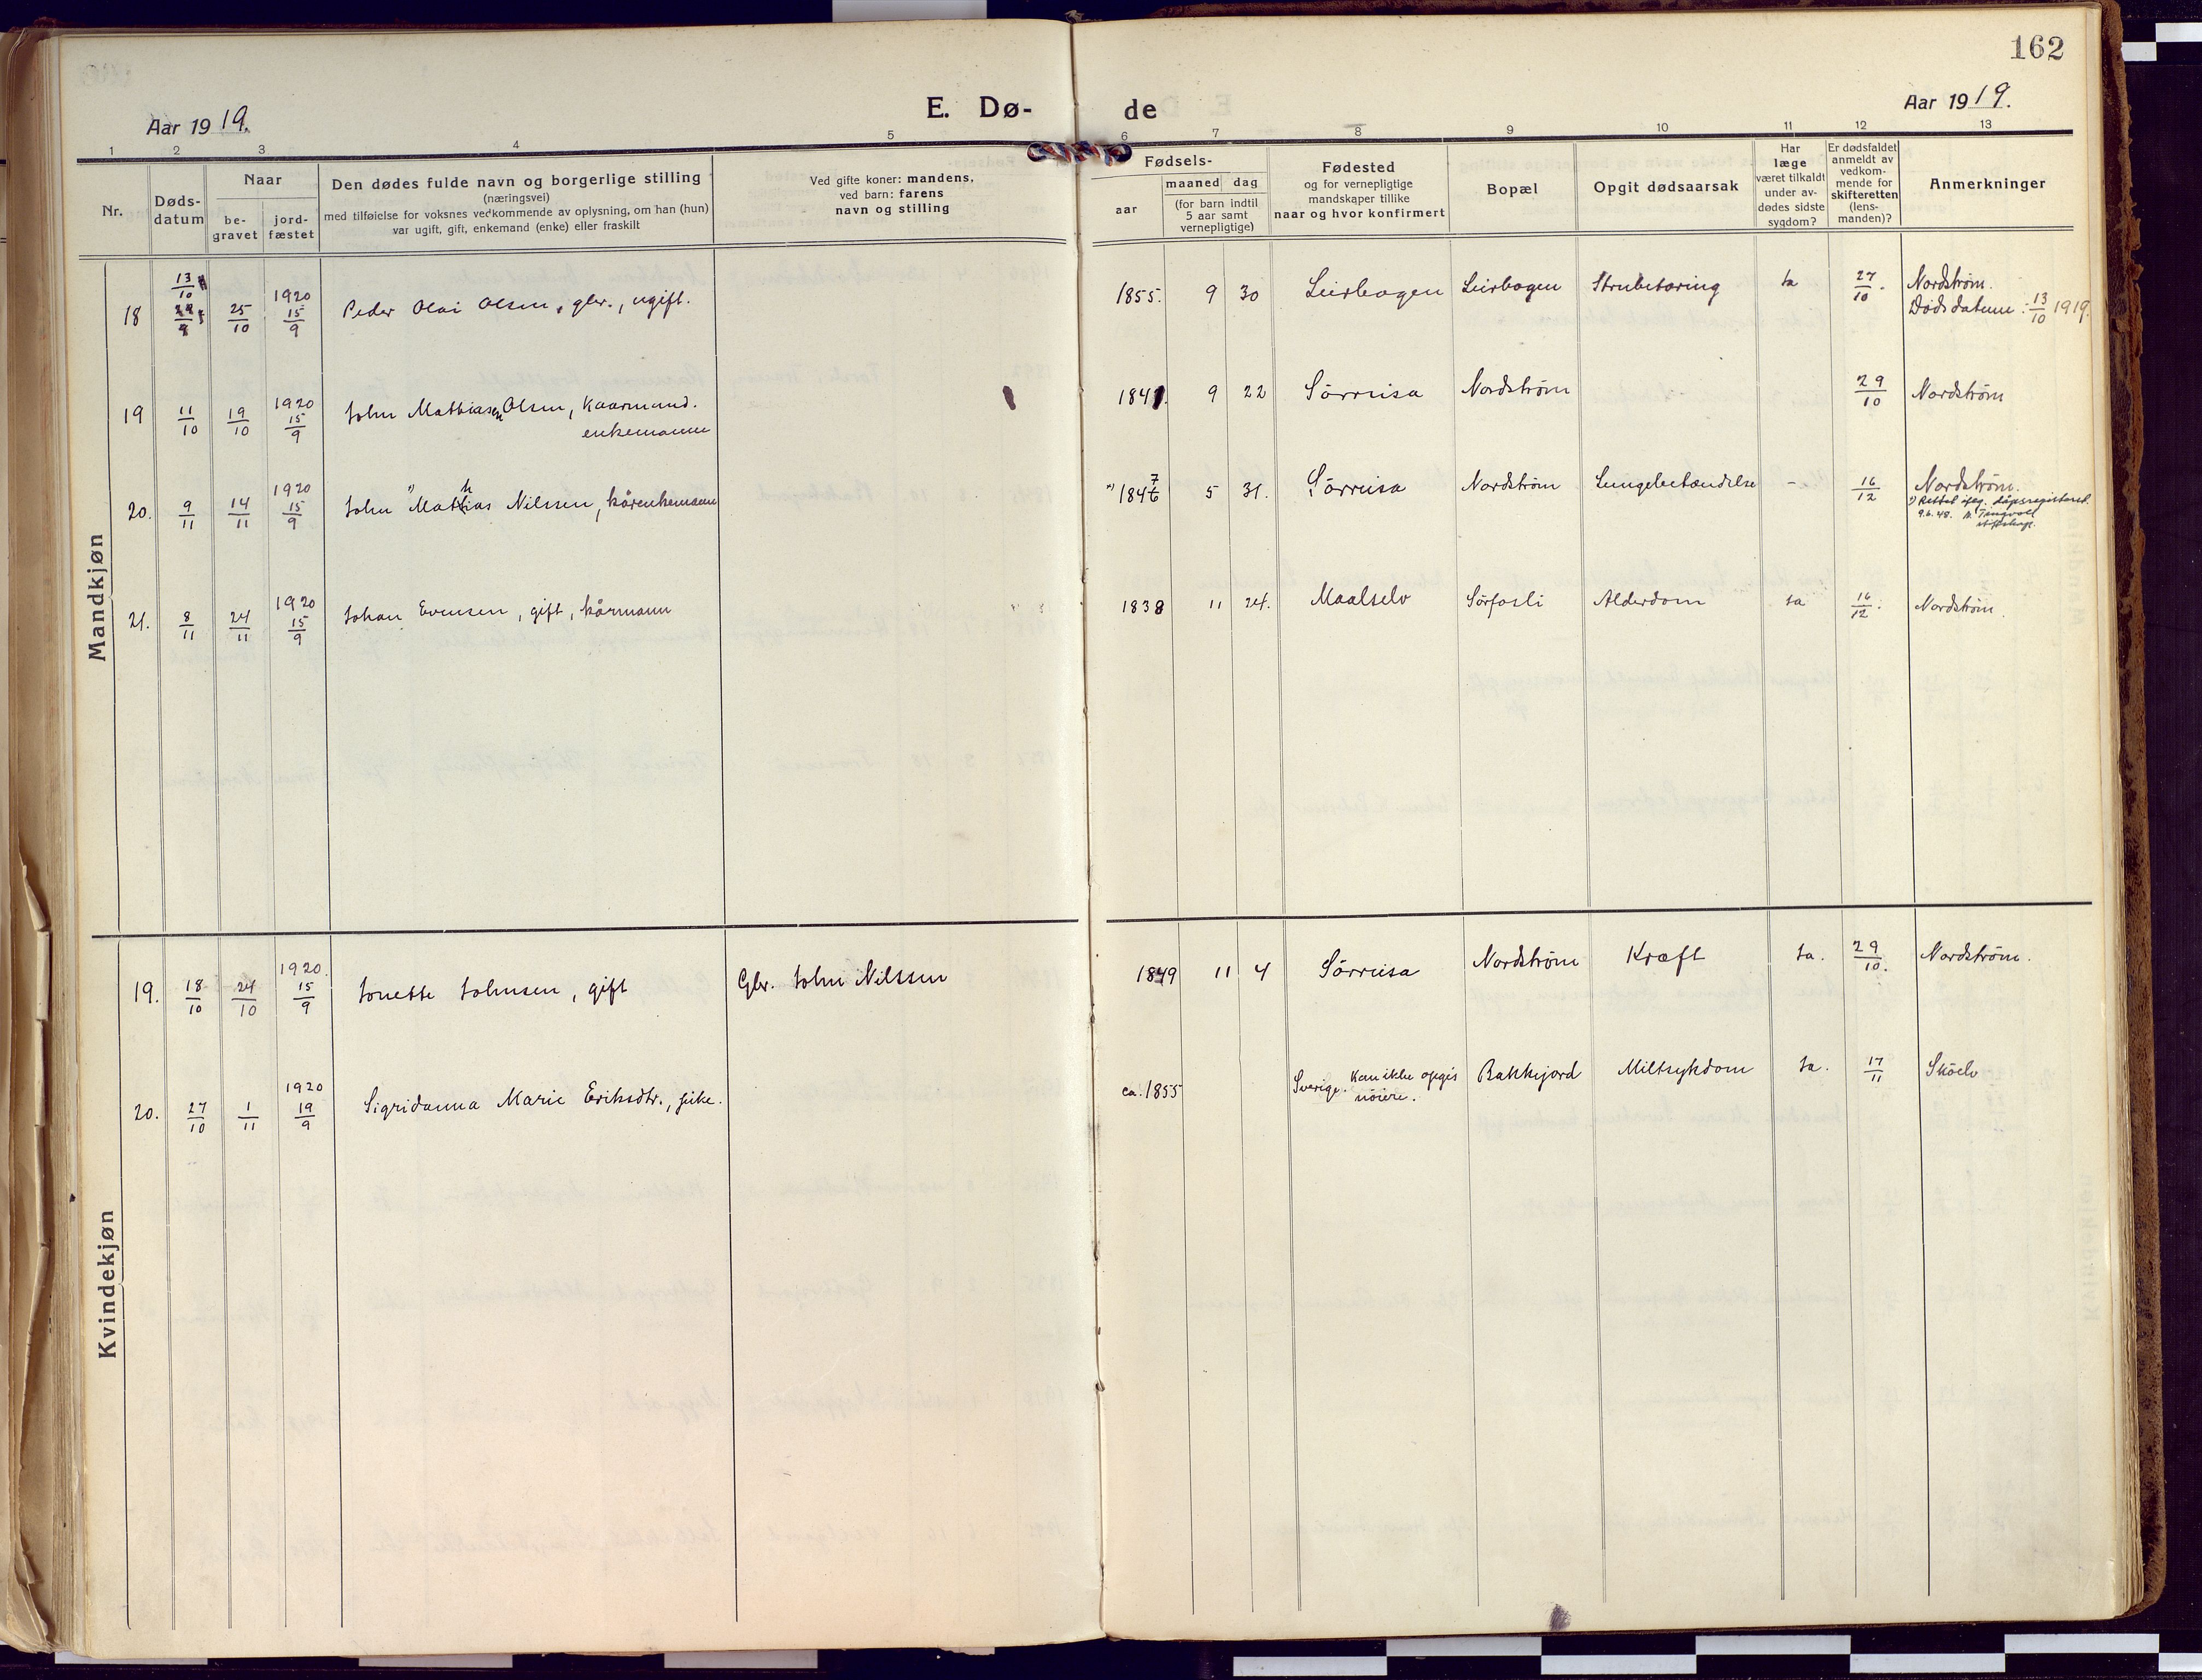 162
Aar 1919.
E. Dø-
de
Aar 1919.
1 2 3 4 5 6 7 8 9 10 11 12 13
Nr.
Døds-
datum
Naar
be-
gravet
jord-
fæstet
Den dødes fulde navn og borgerlige stilling
(næringsvei)
med tilføielse for voksnes vedkommende av oplysning, om han (hun)
var ugift, gift, enkemand (enke) eller fraskilt
Ved gifte koner: mandens,
ved barn: farens
navn og stilling
Fødsels-
aar
maaned dag
(for barn indtil
5 aar samt
vernepligtige)
Fødested
og for vernepligtige
mandskaper tillike
naar og hvor konfirmert
Bopæl
Opgit dødsaarsak
Har
læge
været tilkaldt
under av-
dødes sidste
sygdom?
Er dødsfaldet
anmeldt av
vedkom-
mende for
skifteretten
(lens-
manden)?
Anmerkninger
Mandkjøn
18 13/10 25/10 1920 15/9 Peder Olai Olsen, gbr., ugift. 1855. 9 30 Leirbogen Leirbogen Strubetæring Ja 27/10. Nordstrøm.
Dødsdatum: 13/10 1919.
19 11/10 19/10 1920 15/9 John Mathiasen Olsen, Kaarmand. 1841. 9 22 Sørreisa Nordstrøm 29/10 Nordstrøm
enkemann
20. 9/11 14/11 1920 15/9 John Mathias Nilssen, kårenkemann 1847 5 31. Sørreisa Nordstrøm Lungebetændelse - 16/12 Nordstrøm.
1) Rettet iflg. dåpsregisteret.
9.6.48. N. Tingvoll
21. 8/11 24/11 1920 15/9 Johan Evensen, gift, kårmann 1838 11 24. Maalselv Sørfosli Alderdom Ja 16/12. Nordstrøm.
Kvindekjøn
19. 18/10 24/10 1920. 15/9 Jonette Johnsen, gift Gbr. John Nilssen 1849 11 4 Sørreisa Nordstrøm Kræft Ja. 29/10. Nordstrøm.
20. 27/10 1/11 1920 19/9 Sigridanna Marie Eriksdtr., pike. ca. 1855 Sverige. Kan ikke opgis Bakkejord Miltsykdom Ja. 17/11 Skøelv
nøiere.